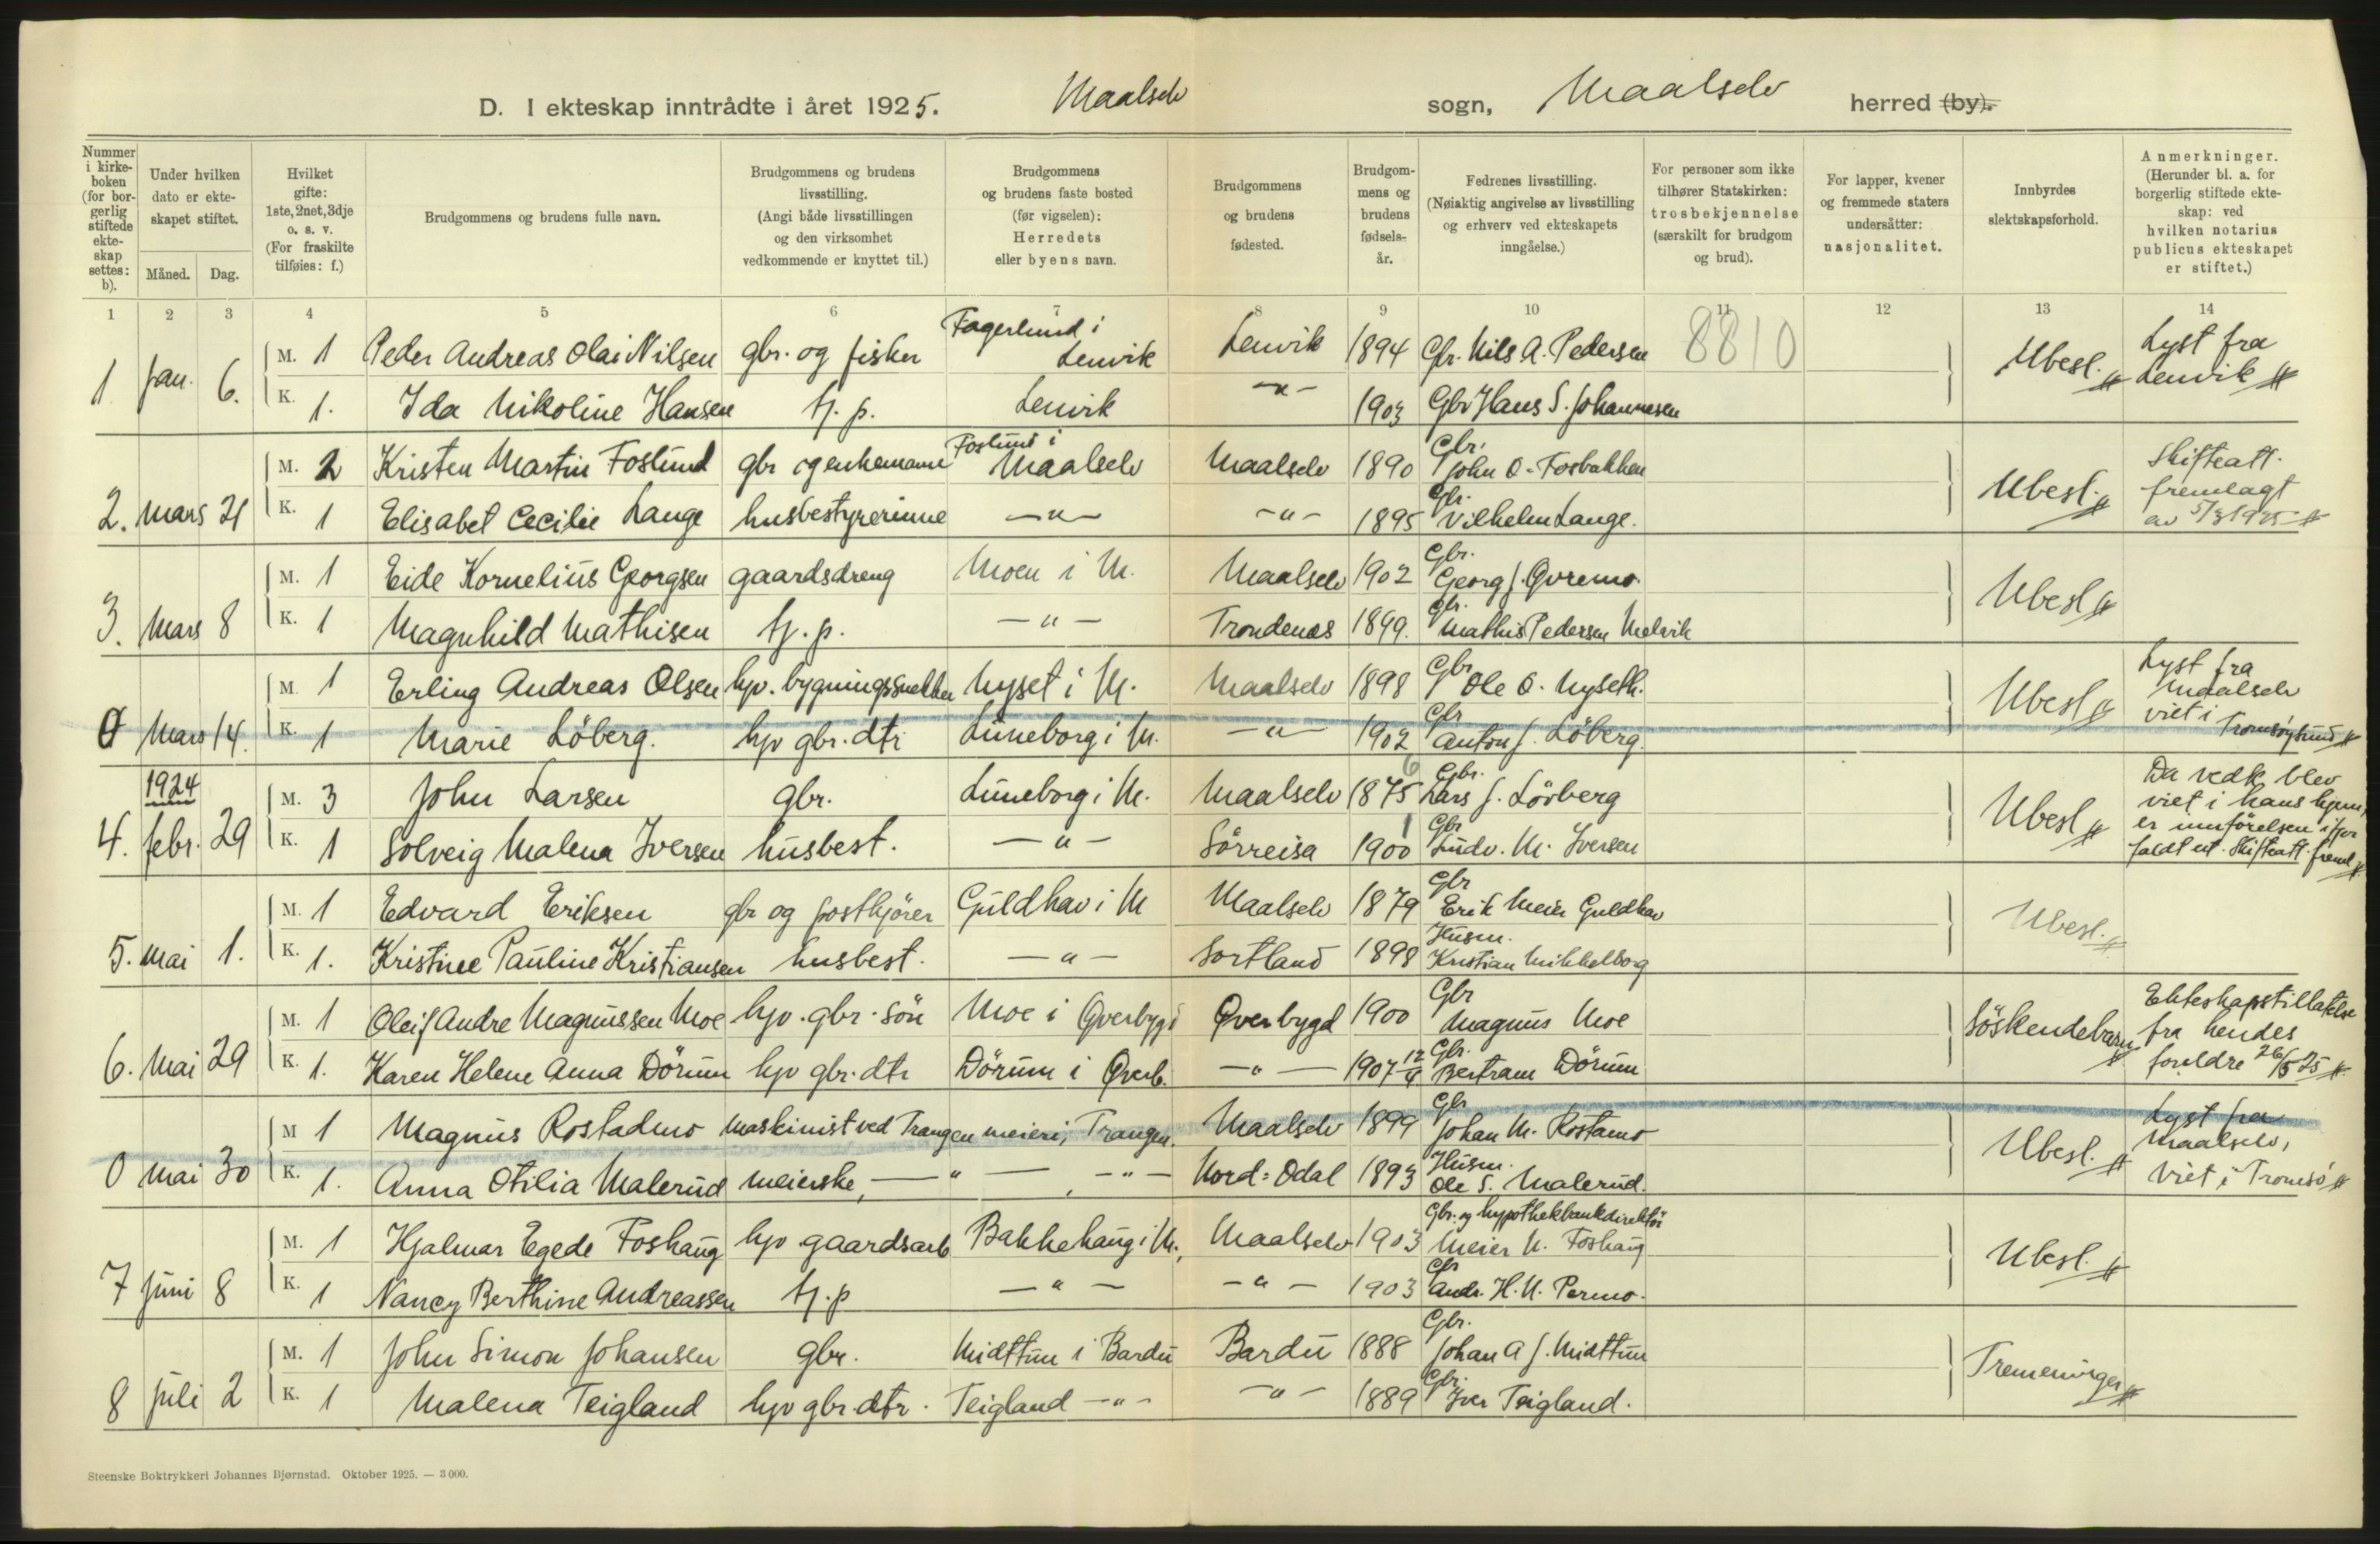 D. I ekteskap inntrådte i året 1925. Maalselv sogn, Maalselv herred (by).
Nummer i kirke-boken (for bor-gerlig stiftede ekte-skap settes: b).
Under hvilken dato er ekte-skapet stiftet.
Måned. Dag.
Hvilket gifte: 1ste, 2net, 3dje o. s. v. (For fraskilte tilføies: f.)
Brudgommens og brudens fulle navn.
Brudgommens og brudens livsstilling. (Angi både livsstillingen og den virksomhet vedkommende er knyttet til.)
Brudgommens og brudens faste bosted (før vigselen): Herredets eller byens navn.
Brudgommens og brudens fødested.
Brudgom-mens og brudens fødsels-år.
Fedrenes livsstilling. (Nøiaktig angivelse av livsstilling og erhverv ved ekteskapets inngåelse.)
For personer som ikke tilhører Statskirken: trosbekjennelse (særskilt for brudgom og brud).
For lapper, kvener og fremmede staters undersåtter: nasjonalitet.
Innbyrdes slektskapsforhold.
Anmerkninger. (Herunder bl. a. for borgerlig stiftede ekte-skap: ved hvilken notarius publicus ekteskapet er stiftet.)
1 2 3 4 5 6 7 8 9 10 11 12 13 14
8810
1 Jan. 6. M. 1 Peder Andreas Olai Nilsen gbr. og fisker Fagerlund i Lenvik Lenvik 1894 Gbr. Nils A. Pedersen Ubesl. Lyst fra Lenvik
K. 1. Ida Nikoline Hansen tj. p. Lenvik —"— 1903 Gbr Hans S. Johannesen
2. Mars 21 M. 2 Kristen Martin Foslund gbr og enkemann Foslund i Maalselv Maalselv 1890 Gbr. John O. Fosbakken Ubesl. Skifteatt. fremlagt av 5/3 1925
K. 1 Elisabet Cecilie Lange husbestyrerinne —"— —"— 1895 Gbr. Vilhelm Lange.
3. Mars 8 M. 1 Eide Kornelius Georgsen gaardsdreng Moen i M. Maalselv 1902 Gbr. Georg J. Øvremo. Ubesl
K. 1 Magnhild Mathisen tj. p. —"— Trondenes 1899. Gbr. Mathis Pedersen Melvik
0 Mars 14. M. 1 Erling Andreas Olsen hjv. bygningssnekker Nyset i M. Maalselv 1898 Gbr Ole O. Nyseth. Ubesl Lyst fra Maalselv viet i Tromsøysund
K. 1 Marie Löberg. hjv gbr. dtr Luneborg i M. —"— 1902 Gbr Anton J. Löberg.
1924
4. febr. 29 M. 3 John Larsen gbr. Luneborg i M. Maalselv 1875 6 Gbr. Lars J. Lövberg Ubesl Da vedk. blev viet i hans hjem, er innförelsen ifjor faldt ut. Skifteatt. freml.
K. 1 Solveig Malena Iversen husbest. —"— Sörreisa 1900 1 Gbr Ludv. M. Iversen
5. Mai 1. M. 1 Edvard Eriksen gbr og postkjörer Guldhav i M Maalselv 1879 Gbr Erik Meier Guldhav Ubesl.
K. 1. Kristine Pauline Kristiansen husbest. —"— Sortland 1898 Husm. Kristian Mikkelborg
6. Mai 29 M. 1 Oleif Andre Magnussen Moe hjv. gbr. sön Moe i Øverbygd Øverbygd 1900 Gbr Magnus Moe Söskendebarn Ekteskapstillatelse fra hendes foreldre 26/5 25
K. 1. Karen Helene Anna Dörum hjv gbr. dtr Dörum i Øverb. —"— 1907 12/4 Gbr. Bertram Dörum
0 Mai 30 M 1 Magnus Rostadmo maskinist ved Trangen meieri, Trangen. Maalselv 1899 Gbr Johan M. Rostamo Ubesl. Lyst fra Maalselv, Viet i Tromsö
K. 1. Anna Otilia Malerud meierske, —"—, —"— Nord-Odal 1893 Husm. Ole S. Malerud.
7 Juni 8 M. 1 Hjalmar Egede Foshaug hjv gaardsarb Bakkehaug i M., Maalselv 1903 Gbr. og hypothekbankdirektör Meier N. Foshaug Ubesl.
K. 1 Nancy Berthine Andreassen tj. p —"— —"— 1903 Gbr Andr. H. N. Permo.
8 Juli 2 M. 1 John Simon Johansen gbr. Midttun i Bardu Bardu 1888 Gbr. Johan A J. Midttun Tremenninger
K. 1 Malena Teigland hjv gbr. dtr. Teigland —"— —"— 1889 Gbr. Iver Teigland.
Steenske Boktrykkeri Johannes Bjørnstad. Oktober 1925. — 3 000.